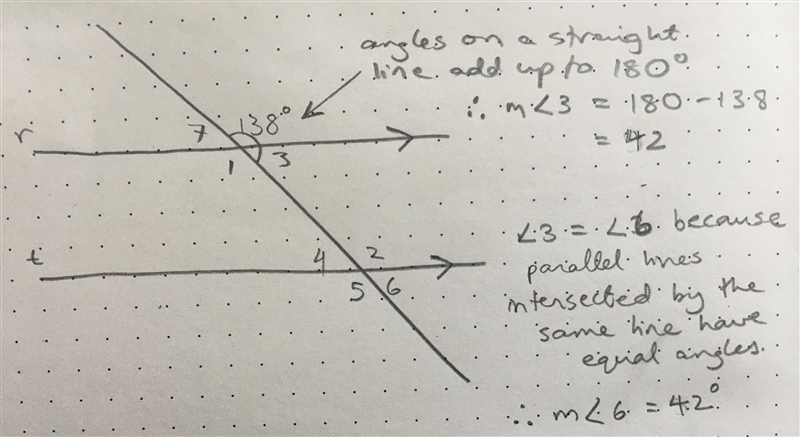 angles on a straight
line add up to 180°
∴ m∠3 = 180 - 138
= 42
7 138°
r
1 3
∠3 = ∠6 because
parallel lines
intersected by the
same line have
equal angles.
∴ m∠6 = 42°
t 4 2
5 6